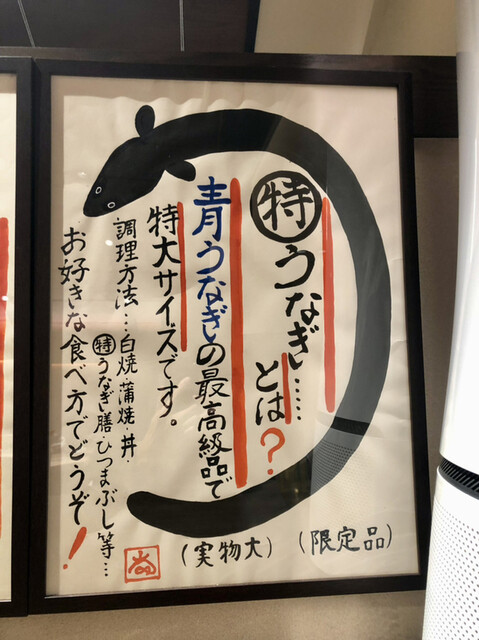 特うなぎ……とは?
青うなぎの最高級品で
特大サイズです。
調理方法…白焼・蒲焼・丼・
特うなぎ膳・ひつまぶし等…
お好きな食べ方でどうぞ!
(限定品)
(実物大)